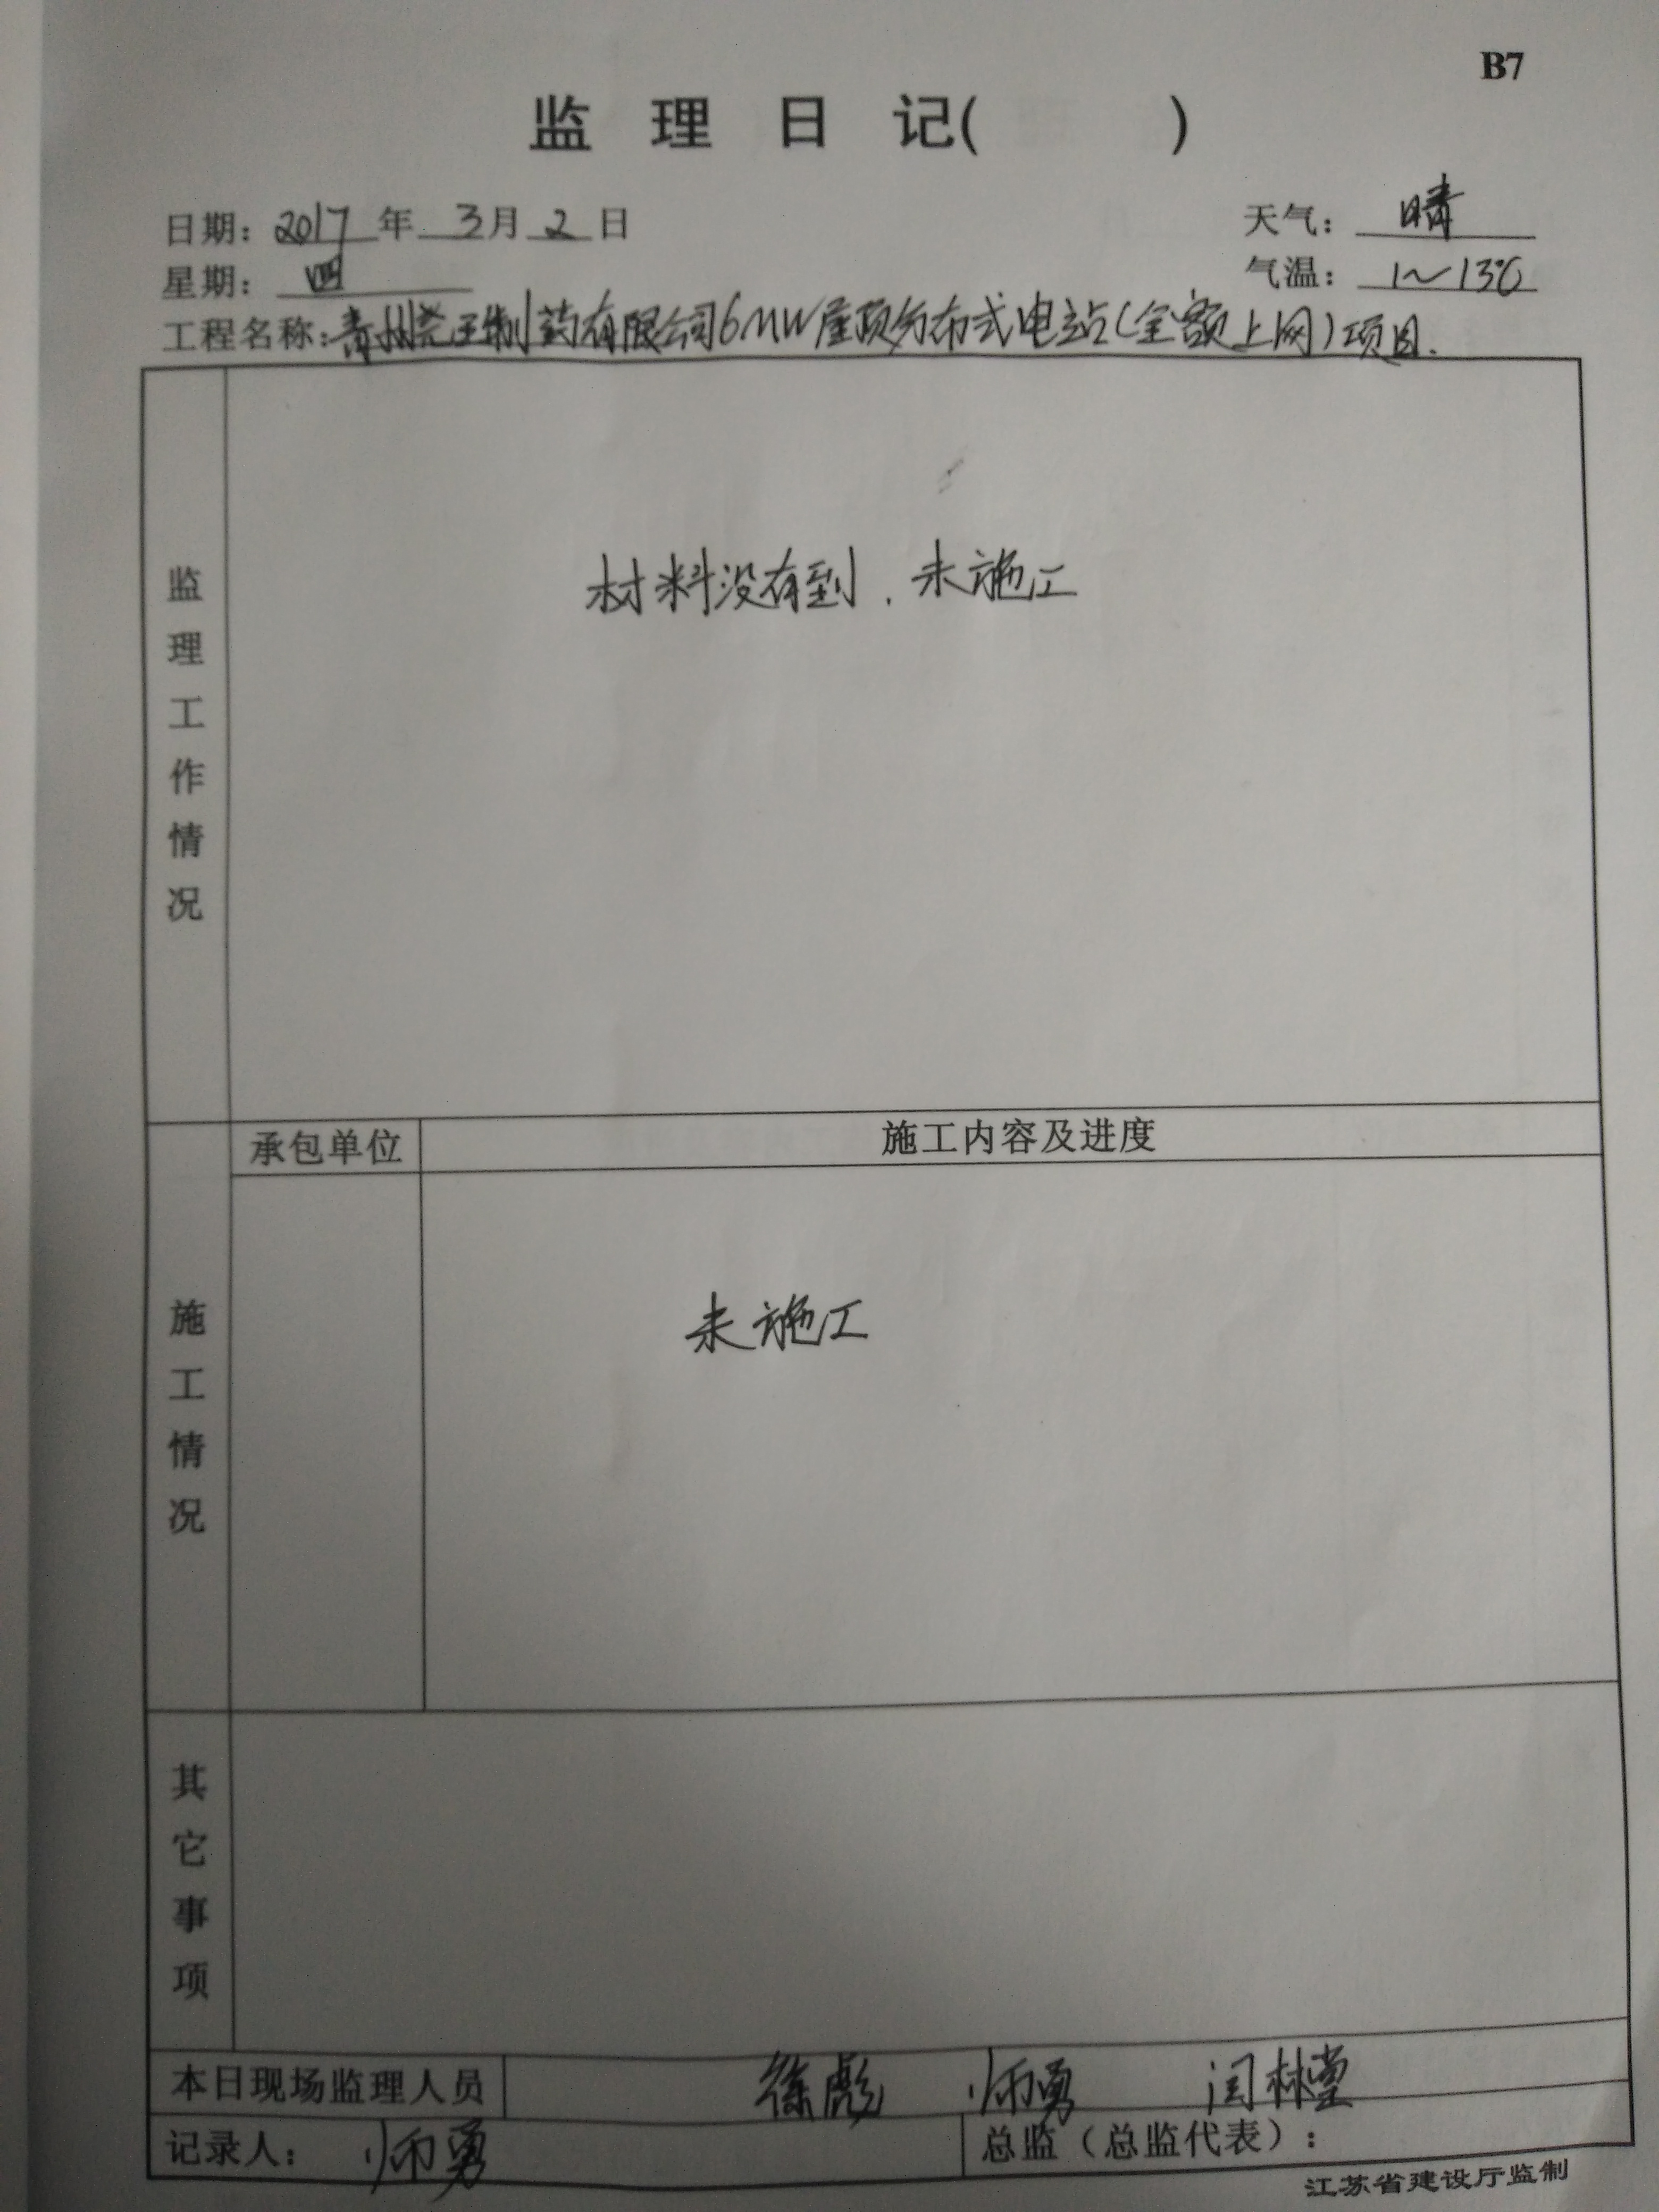 B7
监理日记( )
日期：2017年3月2日 天气：晴
星期：四 气温：1～13℃
工程名称：青州尧王制药有限公司6MW屋顶分布式电站(全额上网)项目.
监理工作情况
材料没有到.未施工
承包单位 施工内容及进度
施工情况
未施工
其它事项
本日现场监理人员 徐彪 师勇 闫林堂
记录人：师勇 总监（总监代表）：
江苏省建设厅监制